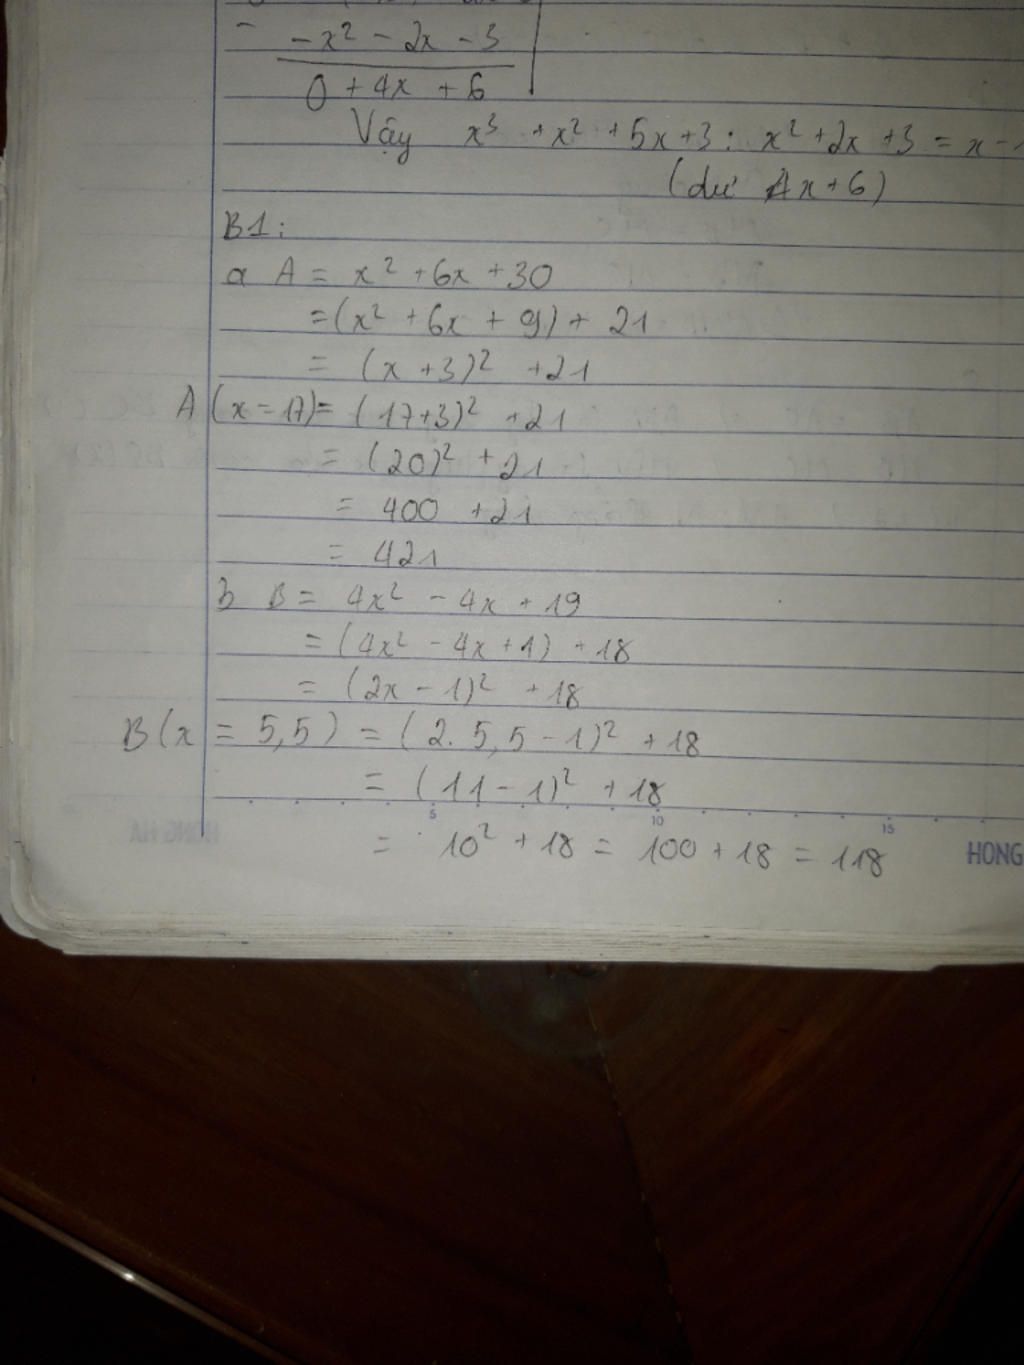 - -x² - 2x - 3
0 + 4x + 6
Vậy x³ + x² + 5x + 3 : x² + 2x + 3 = x - 1
(dư 4x + 6)
B1:
a A = x² + 6x + 30
= (x² + 6x + 9) + 21
= (x + 3)² + 21
A (x = 17) = (17+3)² + 21
= (20)² + 21
= 400 + 21
= 421
b B = 4x² - 4x + 19
= (4x² - 4x + 1) + 18
= (2x - 1)² + 18
B (x = 5,5) = (2. 5,5 - 1)² + 18
= (11 - 1)² + 18
5 10 15
= 10² + 18 = 100 + 18 = 118
HONG